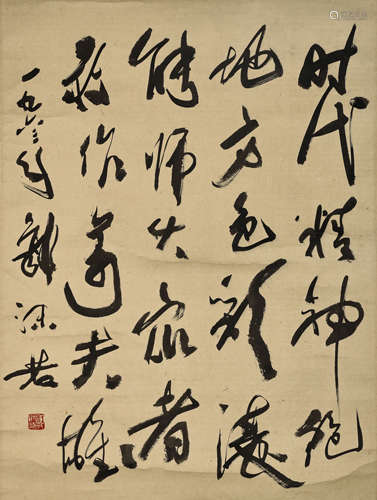 时代精神饱
地方色彩浓
能师大众者
敢作万夫雄
一九六二年
郭沫若